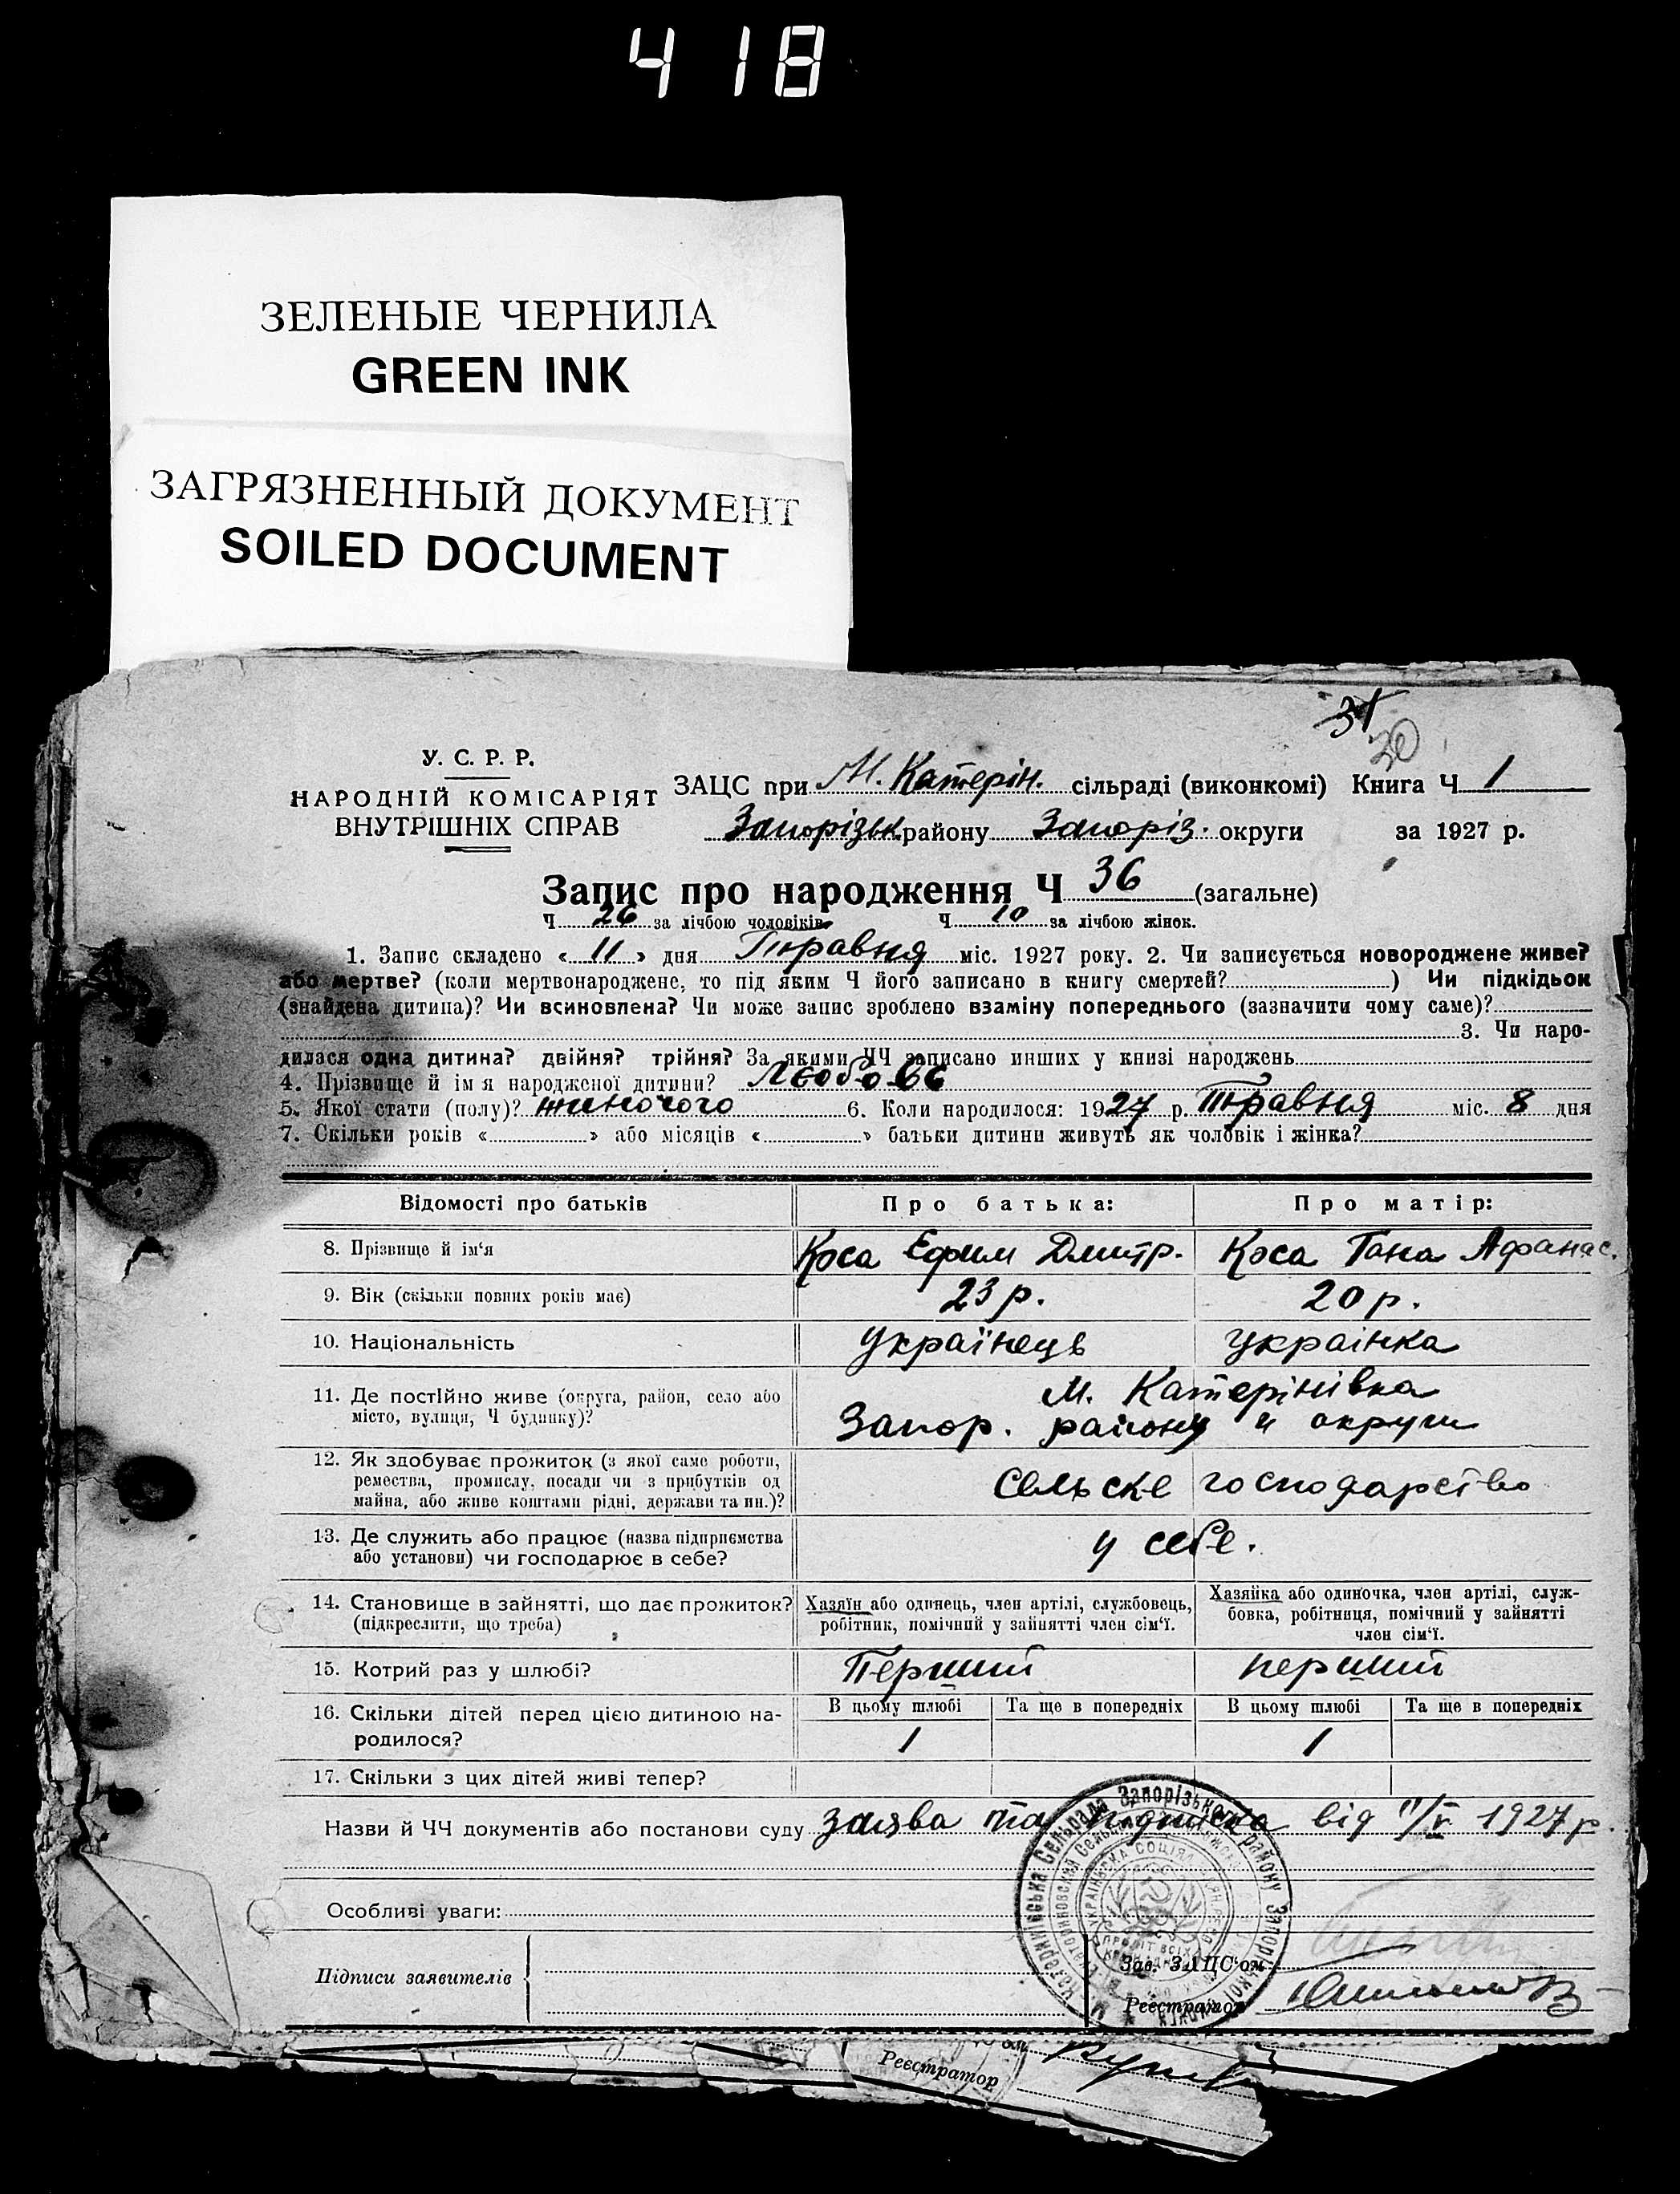 418
ЗЕЛЕНЫЕ ЧЕРНИЛА
GREEN INK
ЗАГРЯЗНЕННЫЙ ДОКУМЕНТ
SOILED DOCUMENT
31
20
У. С. Р. Р.
НАРОДНІЙ КОМІСАРІЯТ
ВНУТРІШНІХ СПРАВ
ЗАЦС при М. Катерін. сільраді (виконкомі) Книга Ч 1
Запорізьк району Запоріз. округи за 1927 р.
Запис про народження Ч 36 (загальне)
Ч 26 за лічбою чоловіків Ч 10 за лічбою жінок.
1. Запис складено « 11 » дня Травня міс. 1927 року. 2. Чи записується новороджене живе?
або мертве? (коли мертвонароджене, то під яким Ч його записано в книгу смертей? ) Чи підкідьок
(знайдена дитина)? Чи всиновлена? Чи може запис зроблено взаміну попереднього (зазначити чому саме)?
3. Чи наро-
дилася одна дитина? двійня? трійня? За якими ЧЧ записано инших у книзі народжень
4. Прізвище й імя народженої дитини? Лєобовь
5. Якої стати (полу)? жиночого 6. Коли народилося: 1927 р. Травня міс. 8 дня
7. Скільки років « » або місяців « » батьки дитини живуть як чоловік і жінка?
Відомості про батьків Про батька: Про матір:
8. Прізвище й ім'я Коса Єфим Дмитр. Коса Гана Афанас.
9. Вік (скільки повних років має) 23 р. 20 р.
10. Національність Українець Українка
11. Де постійно живе (округа, район, село або М. Катерінівка
місто, вулиця, Ч будинку)? Запор. району и округи
12. Як здобуває прожиток (з якої саме роботи,
ремества, промислу, посади чи з прибутків од Сельске господарство
майна, або живе коштами рідні, держави та ин.)?
13. Де служить або працює (назва підприємства у себе.
або установи) чи господарює в себе?
14. Становище в зайнятті, що дає прожиток? Хазяїн або одинець, член артілі, службовець, Хазяйка або одиночка, член артілі, служ-
(підкреслити, що треба) робітник, помічний у зайнятті член сім'ї. бовка, робітниця, помічний у зайнятті
член сім'ї.
15. Котрий раз у шлюбі? Перший перший
16. Скільки дітей перед цією дитиною на- В цьому шлюбі Та ще в попередніх В цьому шлюбі Та ще в попередніх
родилося? 1 1
17. Скільки з цих дітей живі тепер?
Назви й ЧЧ документів або постанови суду заява та підписка від 11/V 1927 р.
Особливі уваги:
Підписи заявителів
Зав. ЗАЦС'ом
Реєстратор
Реєстратор